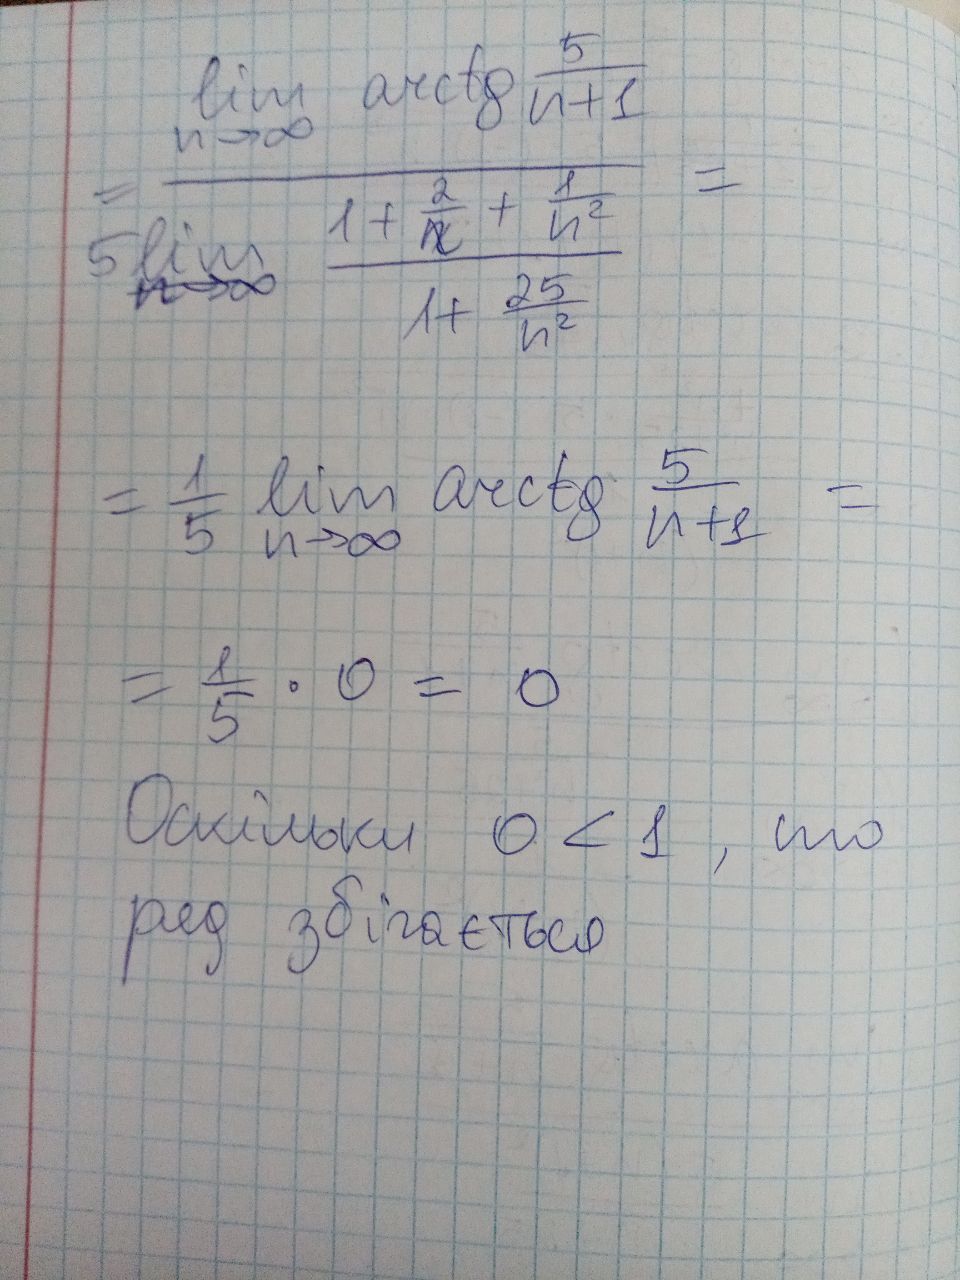 lim n→∞ arctg 5/(n+1)
= ――――――――――― =
5 lim n→∞ (1 + 2/n + 1/n²)/(1 + 25/n²)
= 1/5 lim n→∞ arctg 5/(n+1) =
= 1/5 · 0 = 0
Оскільки 0 < 1, то
ряд збігається